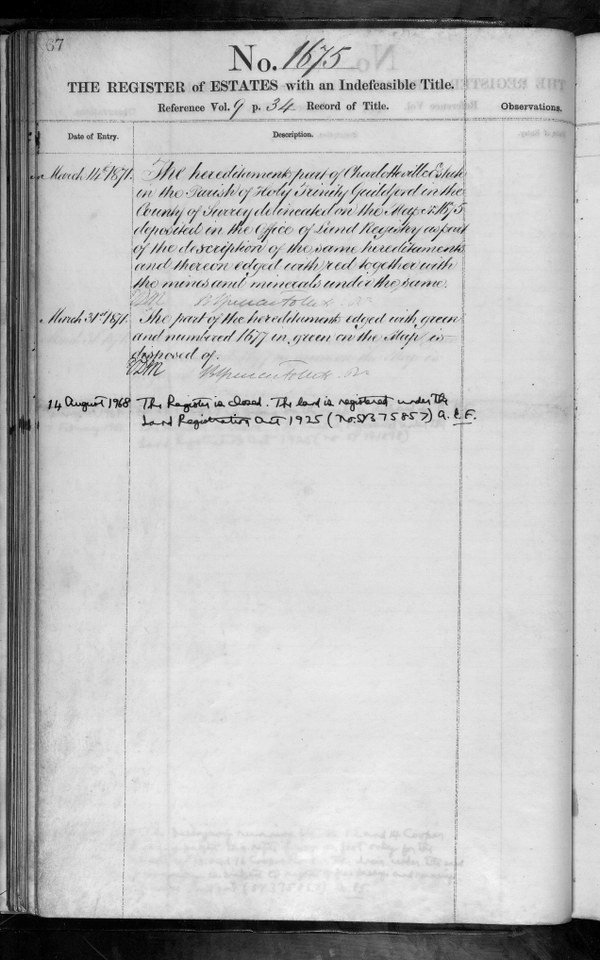 67
No. 1675
THE REGISTER of ESTATES with an Indefeasible Title.
Reference Vol. 9 p. 34 Record of Title.
Observations.
Date of Entry.
Description.
March 14th 1871.
The hereditaments part of Charlotteville Estate
in the Parish of Holy Trinity Guildford in the
County of Surrey delineated on the Map No. 1675
deposited in the Office of Land Registry as part
of the description of the same hereditaments
and thereon edged with red together with
the mines and minerals under the same.
March 31st 1871.
The part of the hereditaments edged with green
and numbered 1677 in green on the Map is
disposed of.
14 August 1968
The Register is closed. The land is registered under the
Land Registration Act 1925 (No. SY375857)